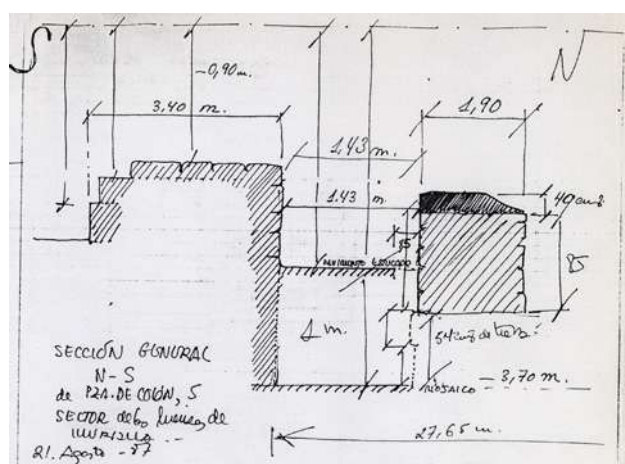 S
N
-0,90 m.
3,40 m.
1,90
1,43 m.
1.43 m.
40 cms
85
PAVIMENTO ESTUCADO
85
1 m.
54 cms de tierra
MOSAICO
-3,70 m.
27,65 m.
SECCIÓN GENERAL
N-S
de PZA. DE COLÓN, 5
SECTOR de
de
MURALLA
21. Agosto -87